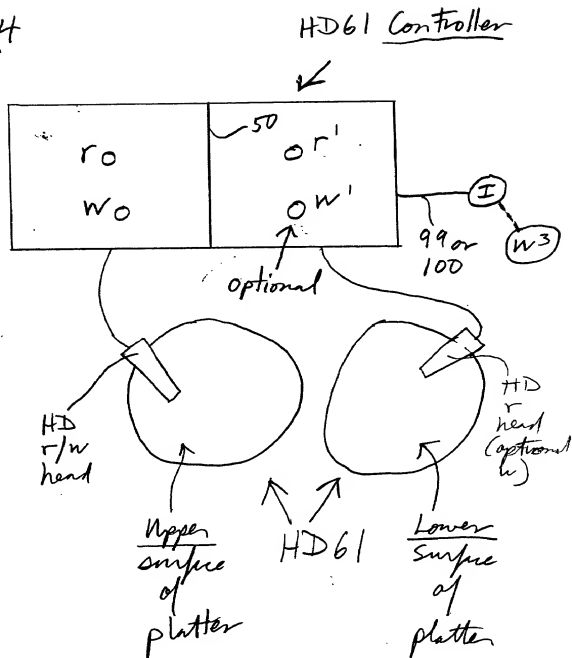 4
HD61 Controller
50
r
r'
w
w'
I
99 or
100
W³
optional
HD
r/w
head
HD
r
head
(optional
w)
Upper
surface
of
platter
HD61
Lower
surface
of
platter